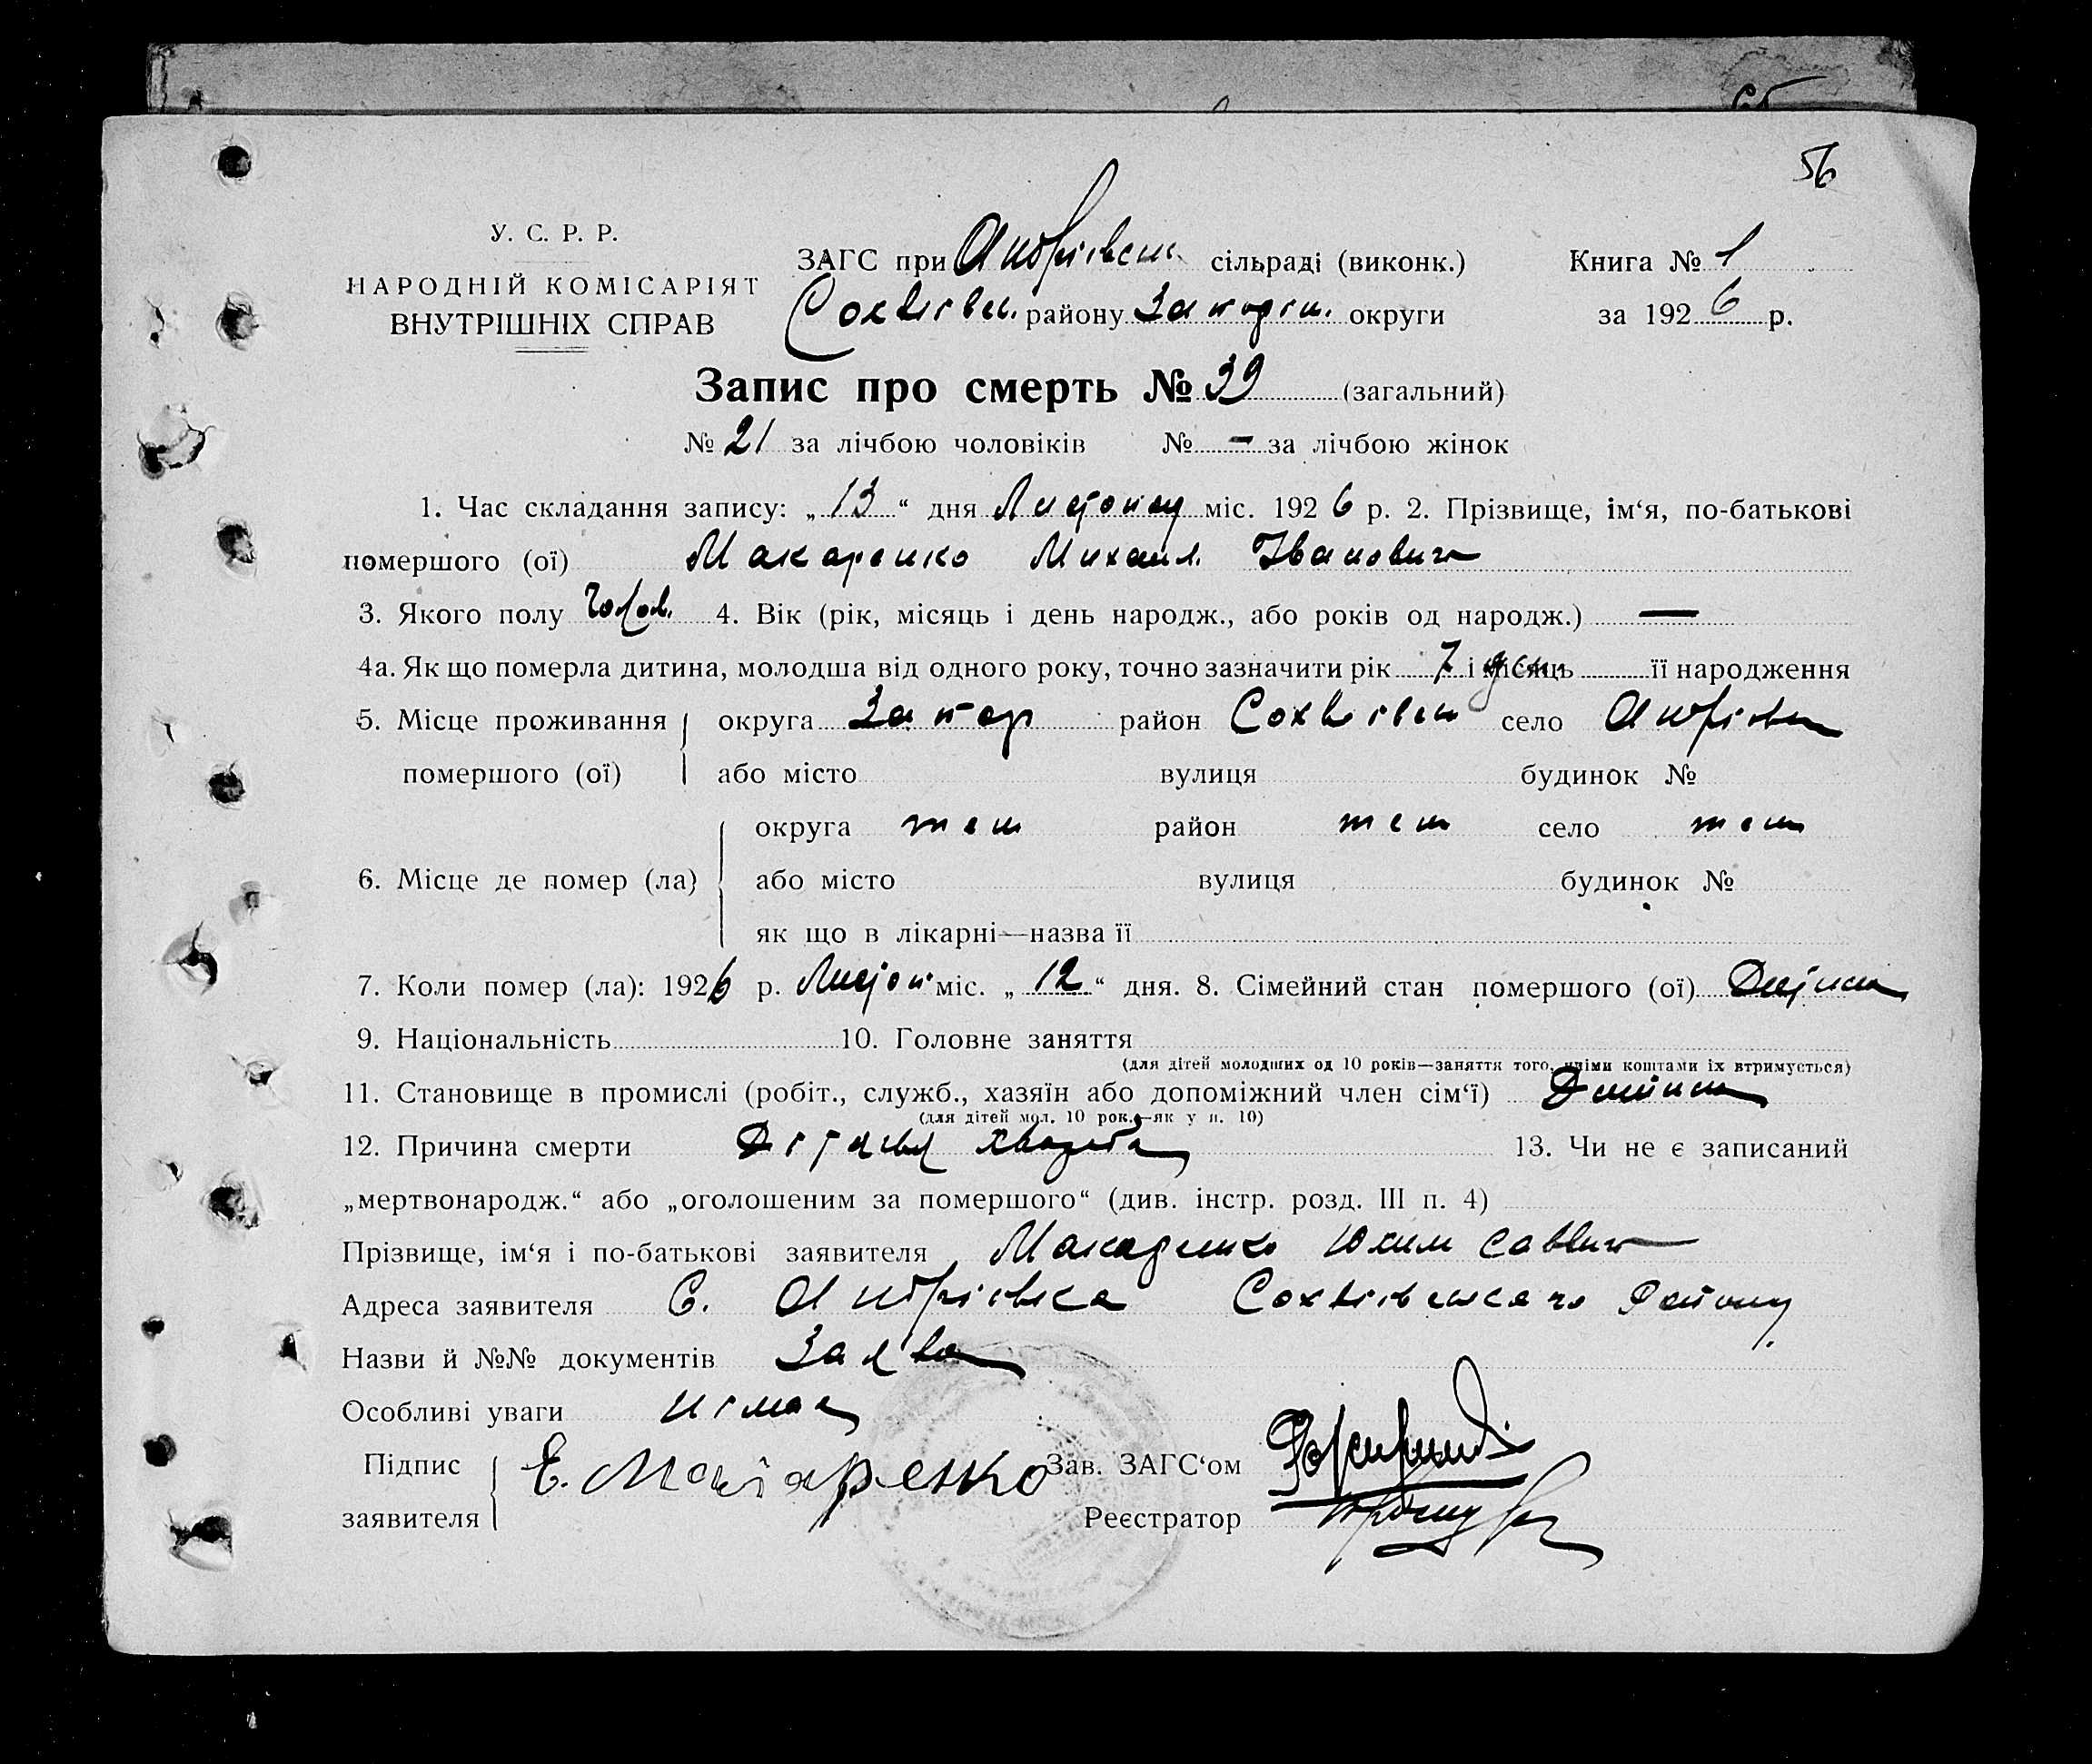 56
У. С. Р. Р.
НАРОДНІЙ КОМІСАРІЯТ
ВНУТРІШНІХ СПРАВ
ЗАГС при Андріївськ. сільраді (виконк.)
Софіївськ. району Запоріж. округи
Книга № 1
за 1926 р.
Запис про смерть № 39 (загальний)
№ 21 за лічбою чоловіків № — за лічбою жінок
1. Час складання запису: „13“ дня Листопад міс. 1926 р. 2. Прізвище, ім‘я, по-батькові
помершого (ої) Макаренко Михаил Іванович
3. Якого полу Чолов. 4. Вік (рік, місяць і день народж., або років од народж.) —
4а. Як що померла дитина, молодша від одного року, точно зазначити рік 7 і місяць її народження
5. Місце проживання округа Запор район село Андрієвк
помершого (ої) або місто вулиця будинок №
округа теж район теж село теж
6. Місце де помер (ла) або місто вулиця будинок №
як що в лікарні—назва її
7. Коли помер (ла): 1926 р. Листоп міс. „12“ дня. 8. Сімейний стан помершого (ої) Дитина
9. Національність 10. Головне заняття
(для дітей молодших од 10 років—заняття того, чціми коштами їх втримується)
11. Становище в промислі (робіт., служб., хазяїн або допоміжний член сім‘ї) Дитина
(для дітей мол. 10 рок.—як у п. 10)
12. Причина смерти Дітяча хвороба 13. Чи не є записаний
„мертвонародж.“ або „оголошеним за помершого“ (див. інстр. розд. III п. 4)
Прізвище, ім‘я і по-батькові заявителя Макаренко Юхим Саввич
Адреса заявителя С. Андріівка Району
Назви й №№ документів Заява
Особливі уваги немає
Підпис заявителя Е. Макаренко Зав. ЗАГС‘ом
Реєстратор